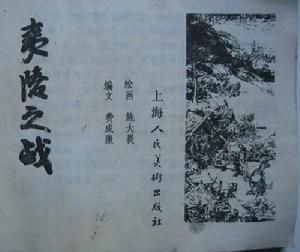 夷陵之战
绘画 施大畏
编文 费成康
上海人民美術出版社